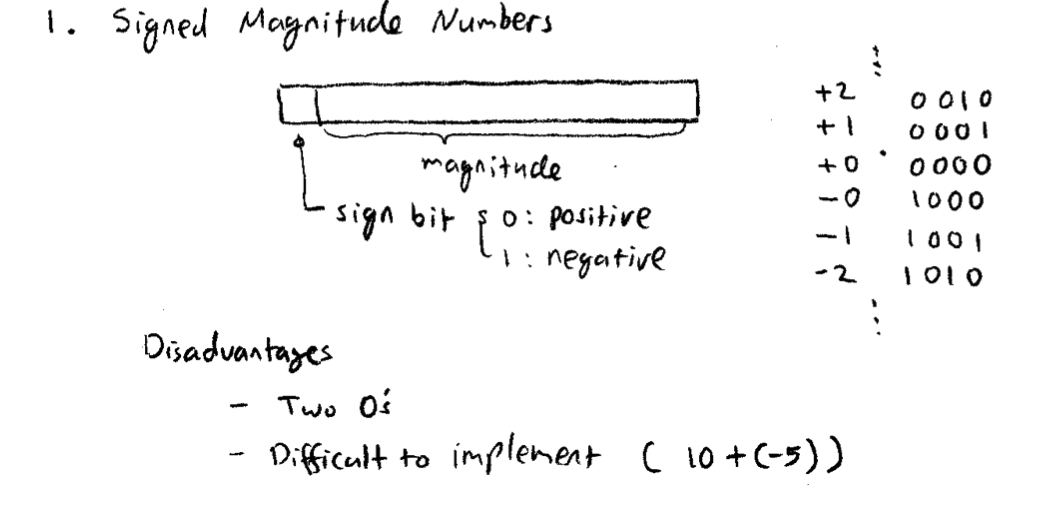 1. Signed Magnitude Numbers
magnitude
sign bit { 0: positive
1: negative
+2 0010
+1 0001
+0 0000
-0 1000
-1 1001
-2 1010
Disadvantages
- Two 0's
- Difficult to implement ( 10 + (-5))